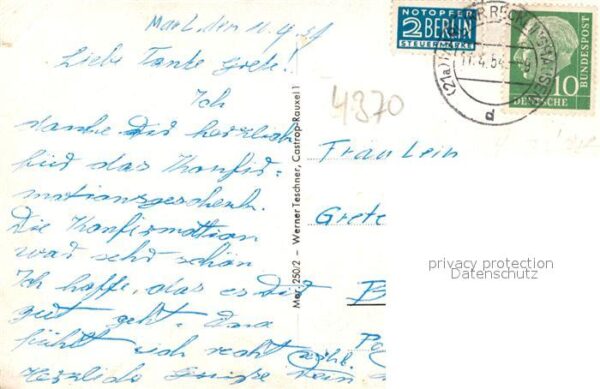 Marl, den 11.4.54
Liebe Tante Grete!
Ich
danke Dir herzlich
für das Konfir-
mationsgeschenk.
Die Konfirmation
war sehr schön
Ich hoffe, das es Dir
gut geht. Und
fühlst dich recht wohl.
Herzliche Grüße Dein
Mar. 250/2 – Werner Teschner, Castrop-Rauxel 1
NOTOPFER
2 BERLIN
STEUERMARKE
(21a)
11.4.54
a
10
DEUTSCHE
BUNDESPOST
4370
Fräulein
Grete
privacy protection
Datenschutz
B